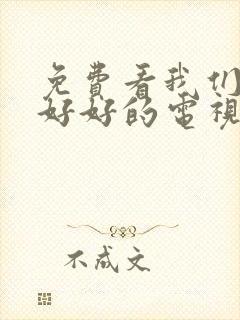 免費看我们
好好的電視
不成文